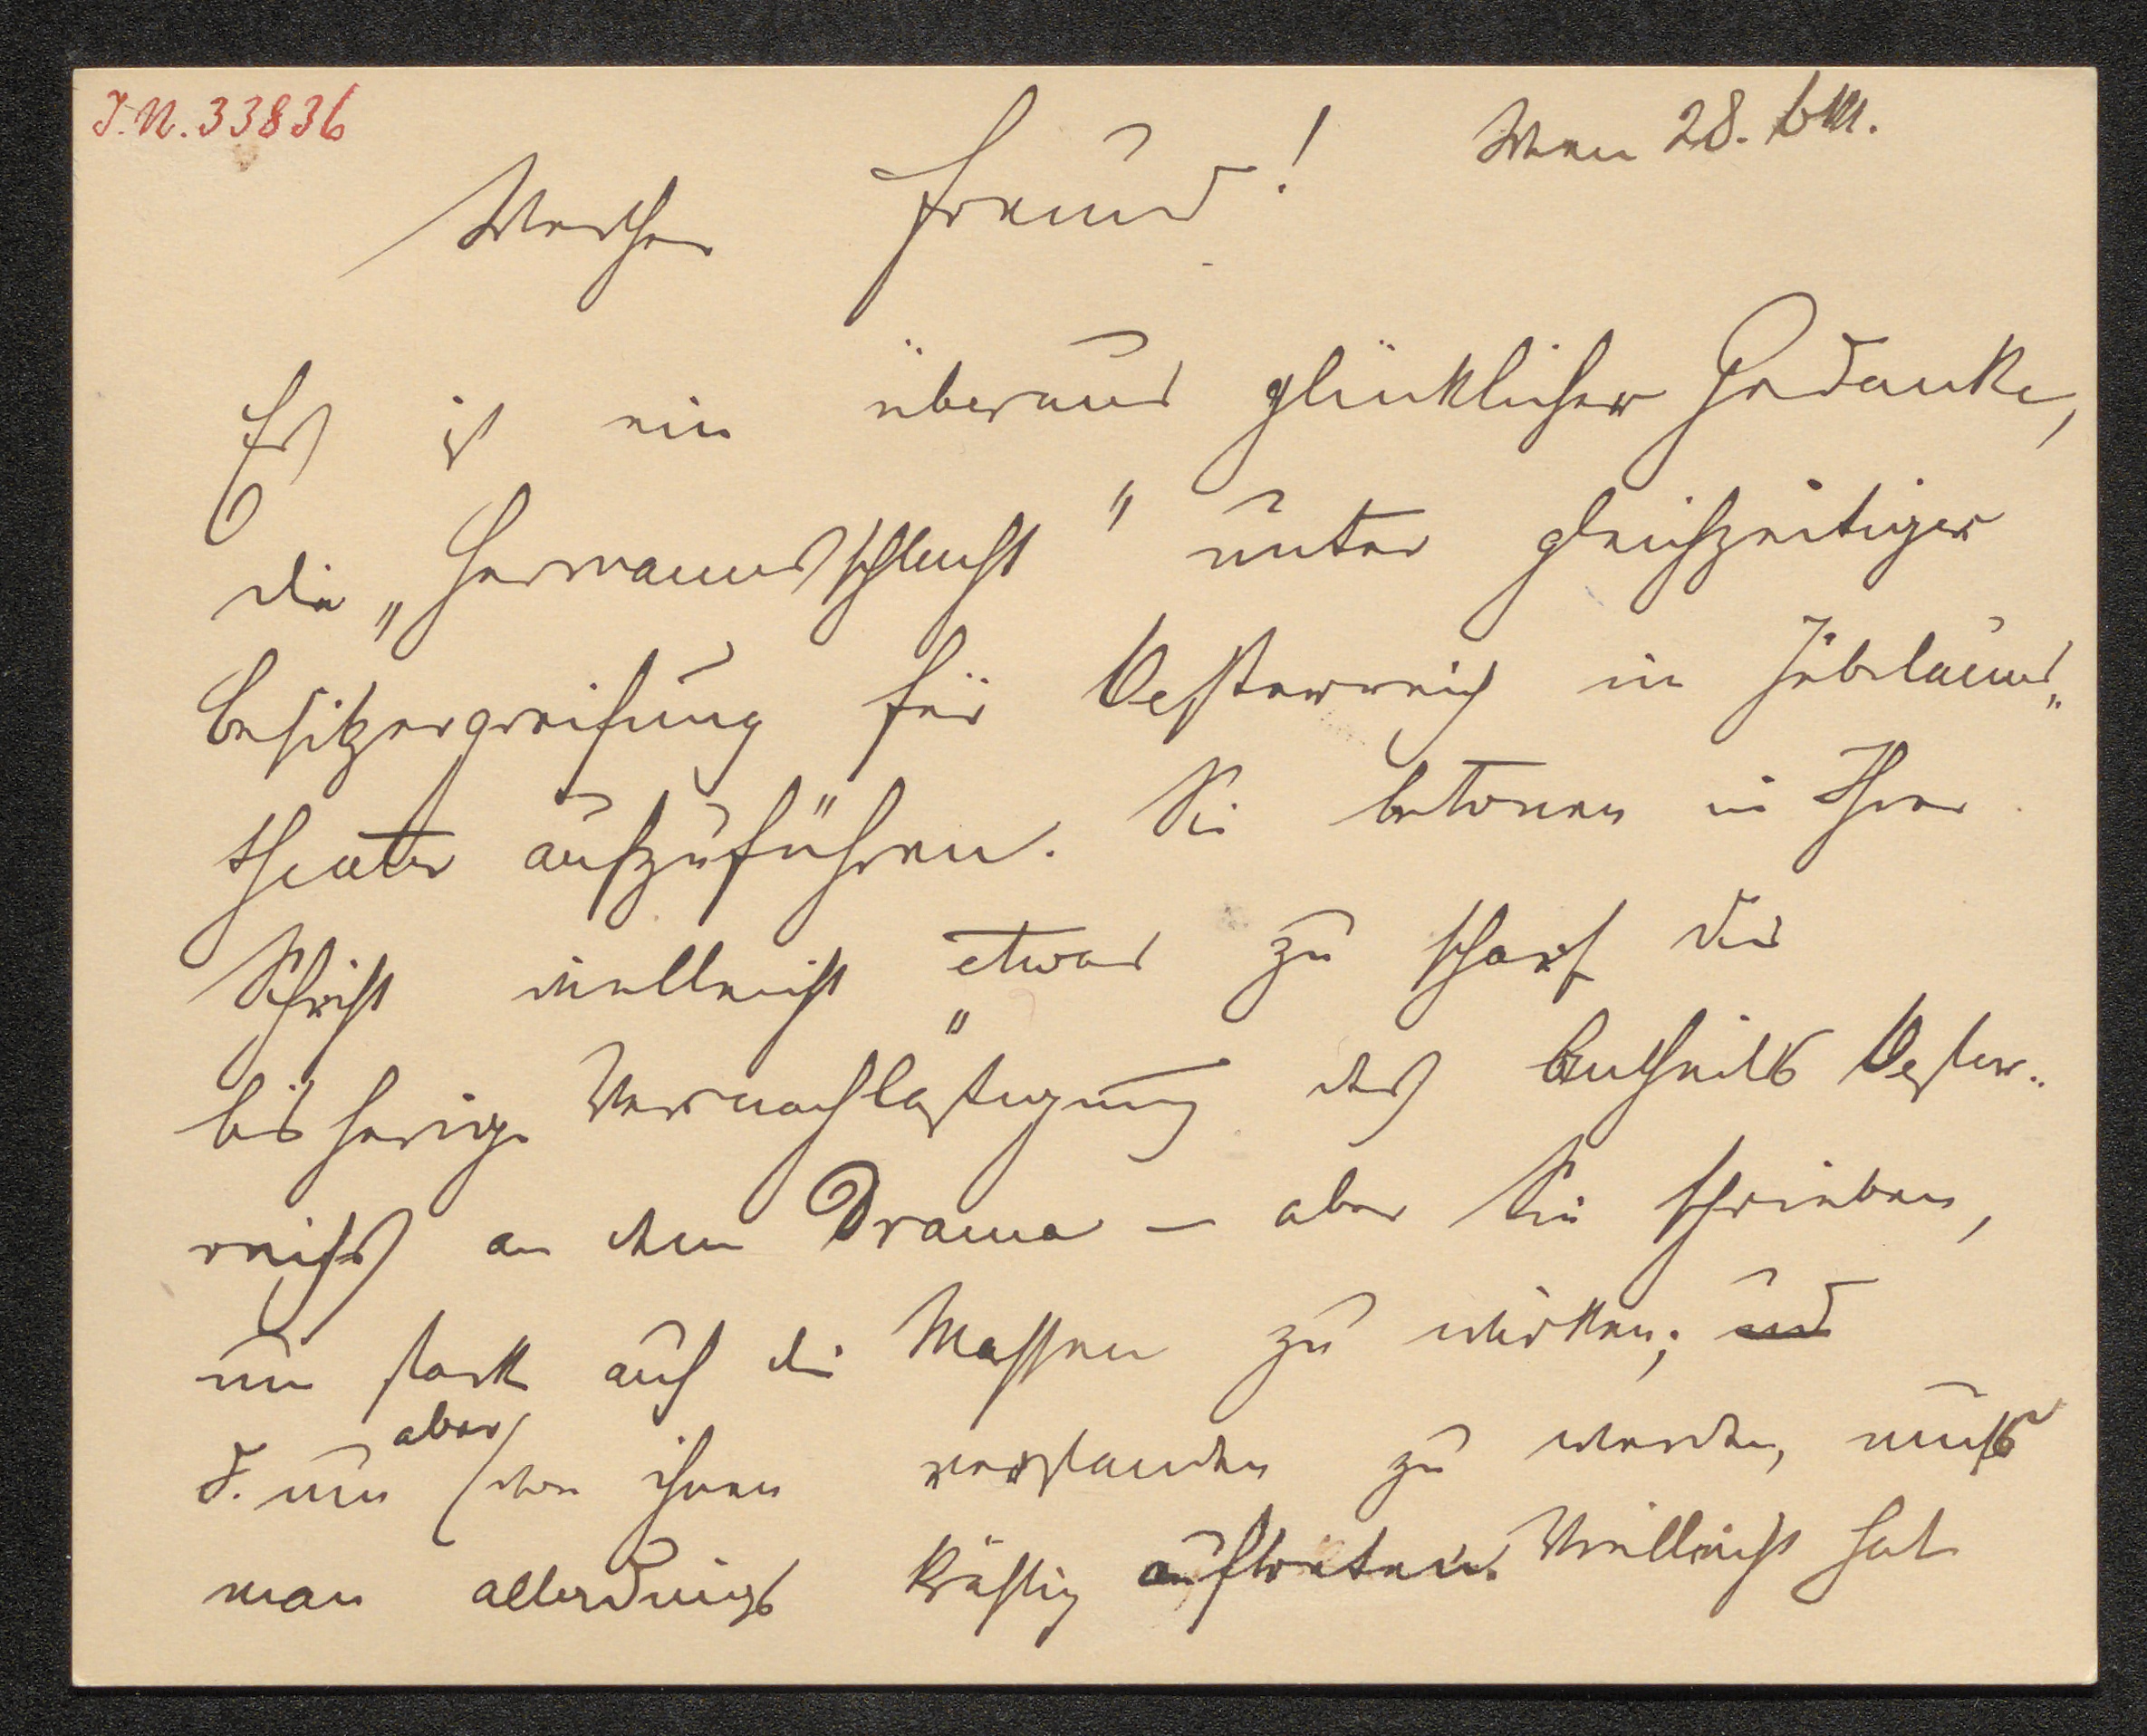 J.N. 33836
Wien 28. Okt.
Werther Freund!
Es ist ein überaus glücklicher Gedanke,
die „Hermannsschlacht" unter gleichzeitiger
Besitzergreifung für Oesterreich im Jubiläums-
theater aufzuführen. Sie betonen in Ihrer
Schrift vielleicht etwas zu scharf die
bisherige Vernachlässigung des Antheils Oester-
reichs an dem Drama – aber Sie schrieben,
um stark auf die Massen zu wirken; und
d. um aber von ihnen verstanden zu werden, muß
man allerdings kräftig auftreten. Vielleicht hat